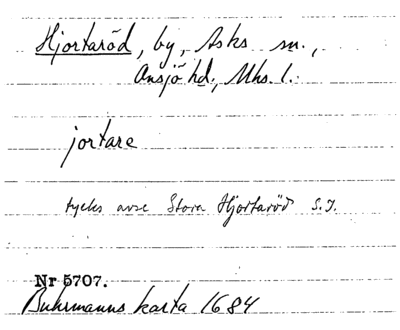 Hjortaröd, by, Asks sn.,
Onsjö hd., Mhs. l.
jortare
tycks avse Stora Hjortaröd S.J.
Nr 5707.
Buhrmanns karta 1684